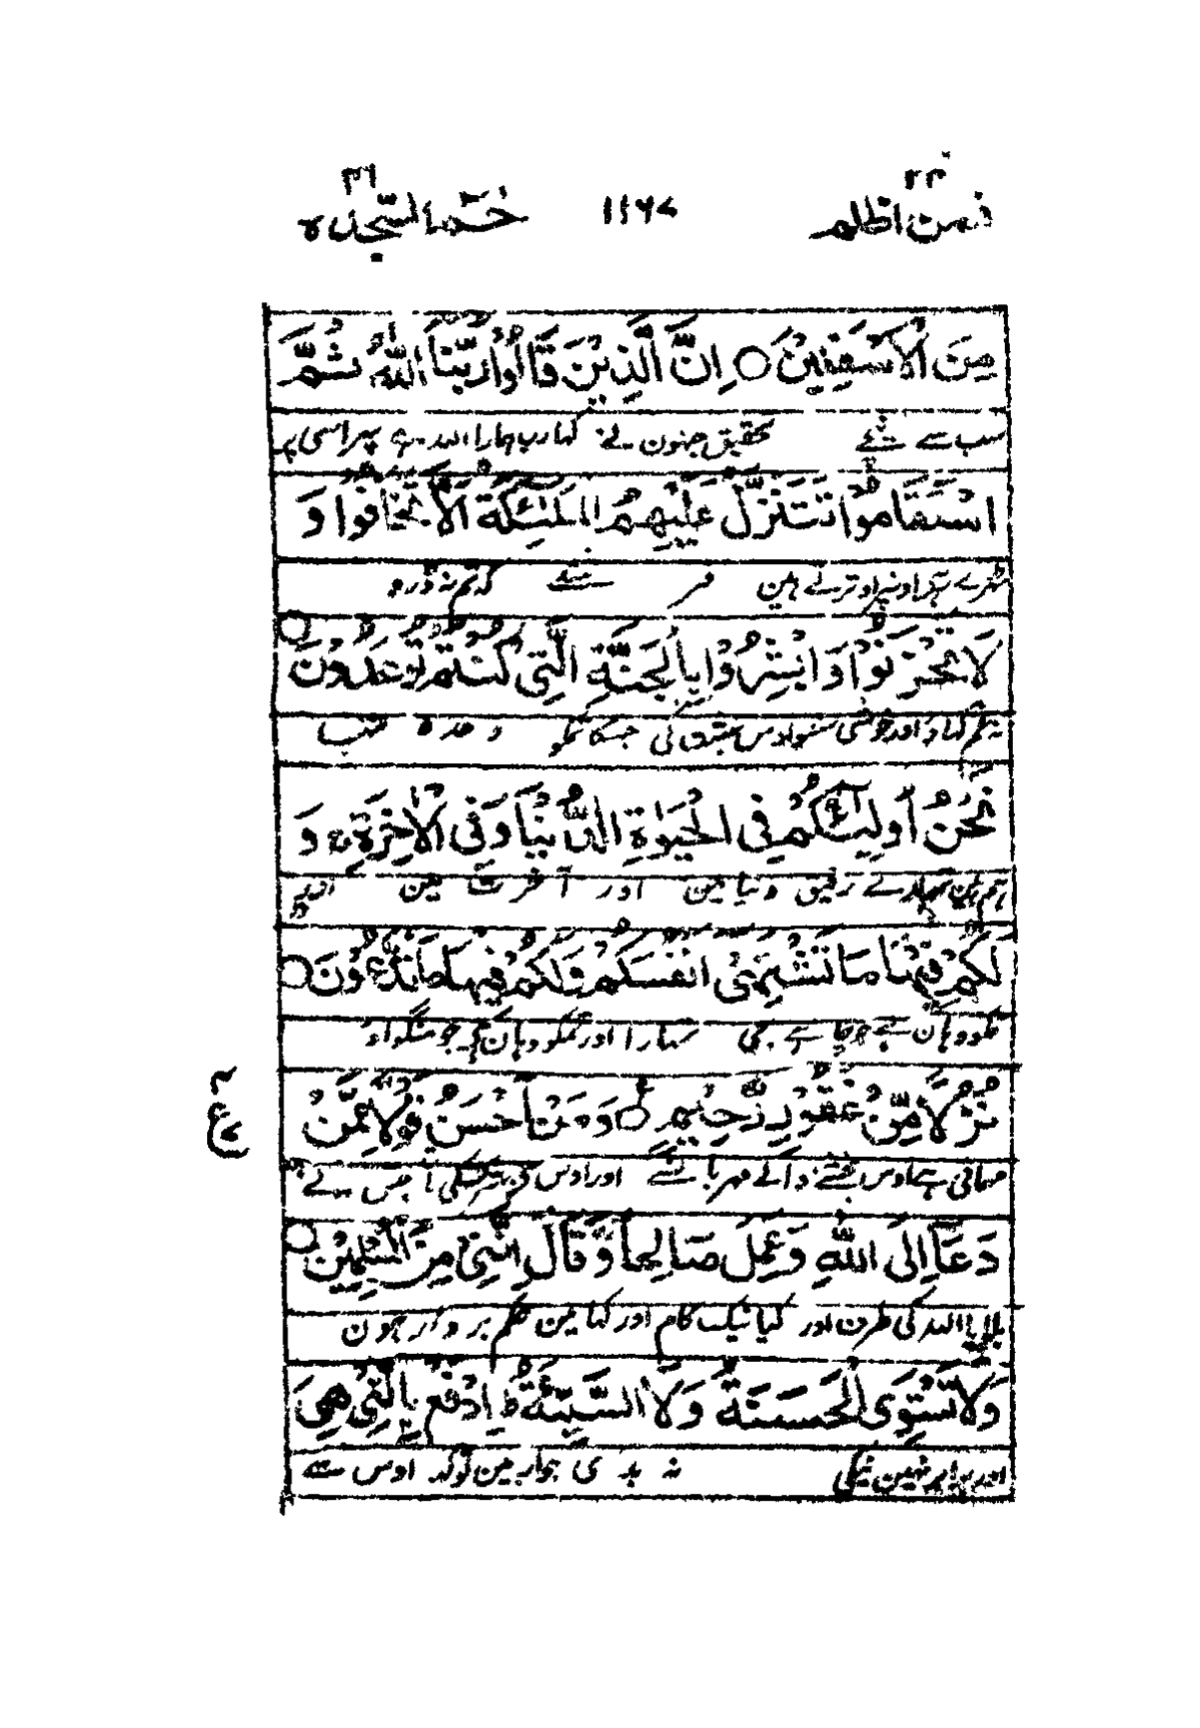 فمن اظلم ۲۴ ۱۱۶۷ حٰمٓ السجدہ ۴۱
مِنَ الْاَسْفَلِیْنَ ○ اِنَّ الَّذِیْنَ قَالُوْا رَبُّنَا اللّٰهُ ثُمَّ
سب سے تحقیق جنہون نے کہا رب ہمارا اللہ ہے پہر اسی پر
اسْتَقَامُوْا تَتَنَزَّلُ عَلَیْهِمُ الْمَلٰٓئِكَةُ اَلَّا تَخَافُوْا وَ
ٹھرے رہے اونپر اوترتے ہین کہ تم نہ ڈرو
لَا تَحْزَنُوْا وَ اَبْشِرُوْا بِالْجَنَّةِ الَّتِیْ كُنْتُمْ تُوْعَدُوْنَ ○
نہ غم کہاو اور خوشی سنو اوس بہشت کی جسکا تمکو وعدہ
نَحْنُ اَوْلِیٰٓـؤُكُمْ فِی الْحَیٰوةِ الدُّنْیَا وَ فِی الْاٰخِرَةِ ۚ وَ
ہم ہین تمہارے رفیق دنیا مین اور آخرت مین اور
لَكُمْ فِیْهَا مَا تَشْتَهِیْۤ اَنْفُسُكُمْ وَ لَكُمْ فِیْهَا مَا تَدَّعُوْنَ ○
تمکو وہان ہے جو چاہے جی تمہارا اور تمکو وہان ہے جو منگواو
نُزُلًا مِّنْ غَفُوْرٍ رَّحِیْمٍ ○ وَ مَنْ اَحْسَنُ قَوْلًا مِّمَّنْ
مہمانی ہے اوس بخشنے والے مہربان سے اور اوس سے بہتر کسکی بات جس نے
ع
دَعَاۤ اِلَى اللّٰهِ وَ عَمِلَ صَالِحًا وَّ قَالَ اِنَّنِیْ مِنَ الْمُسْلِمِیْنَ ○
بلایا اللہ کی طرف اور کیا نیک کام اور کہا مین حکم بردار ہون
وَ لَا تَسْتَوِی الْحَسَنَةُ وَ لَا السَّیِّئَةُ ؕ اِدْفَعْ بِالَّتِیْ هِیَ
اور برابر نہین نیکی نہ بدی جواب مین تو کہہ اوس سے